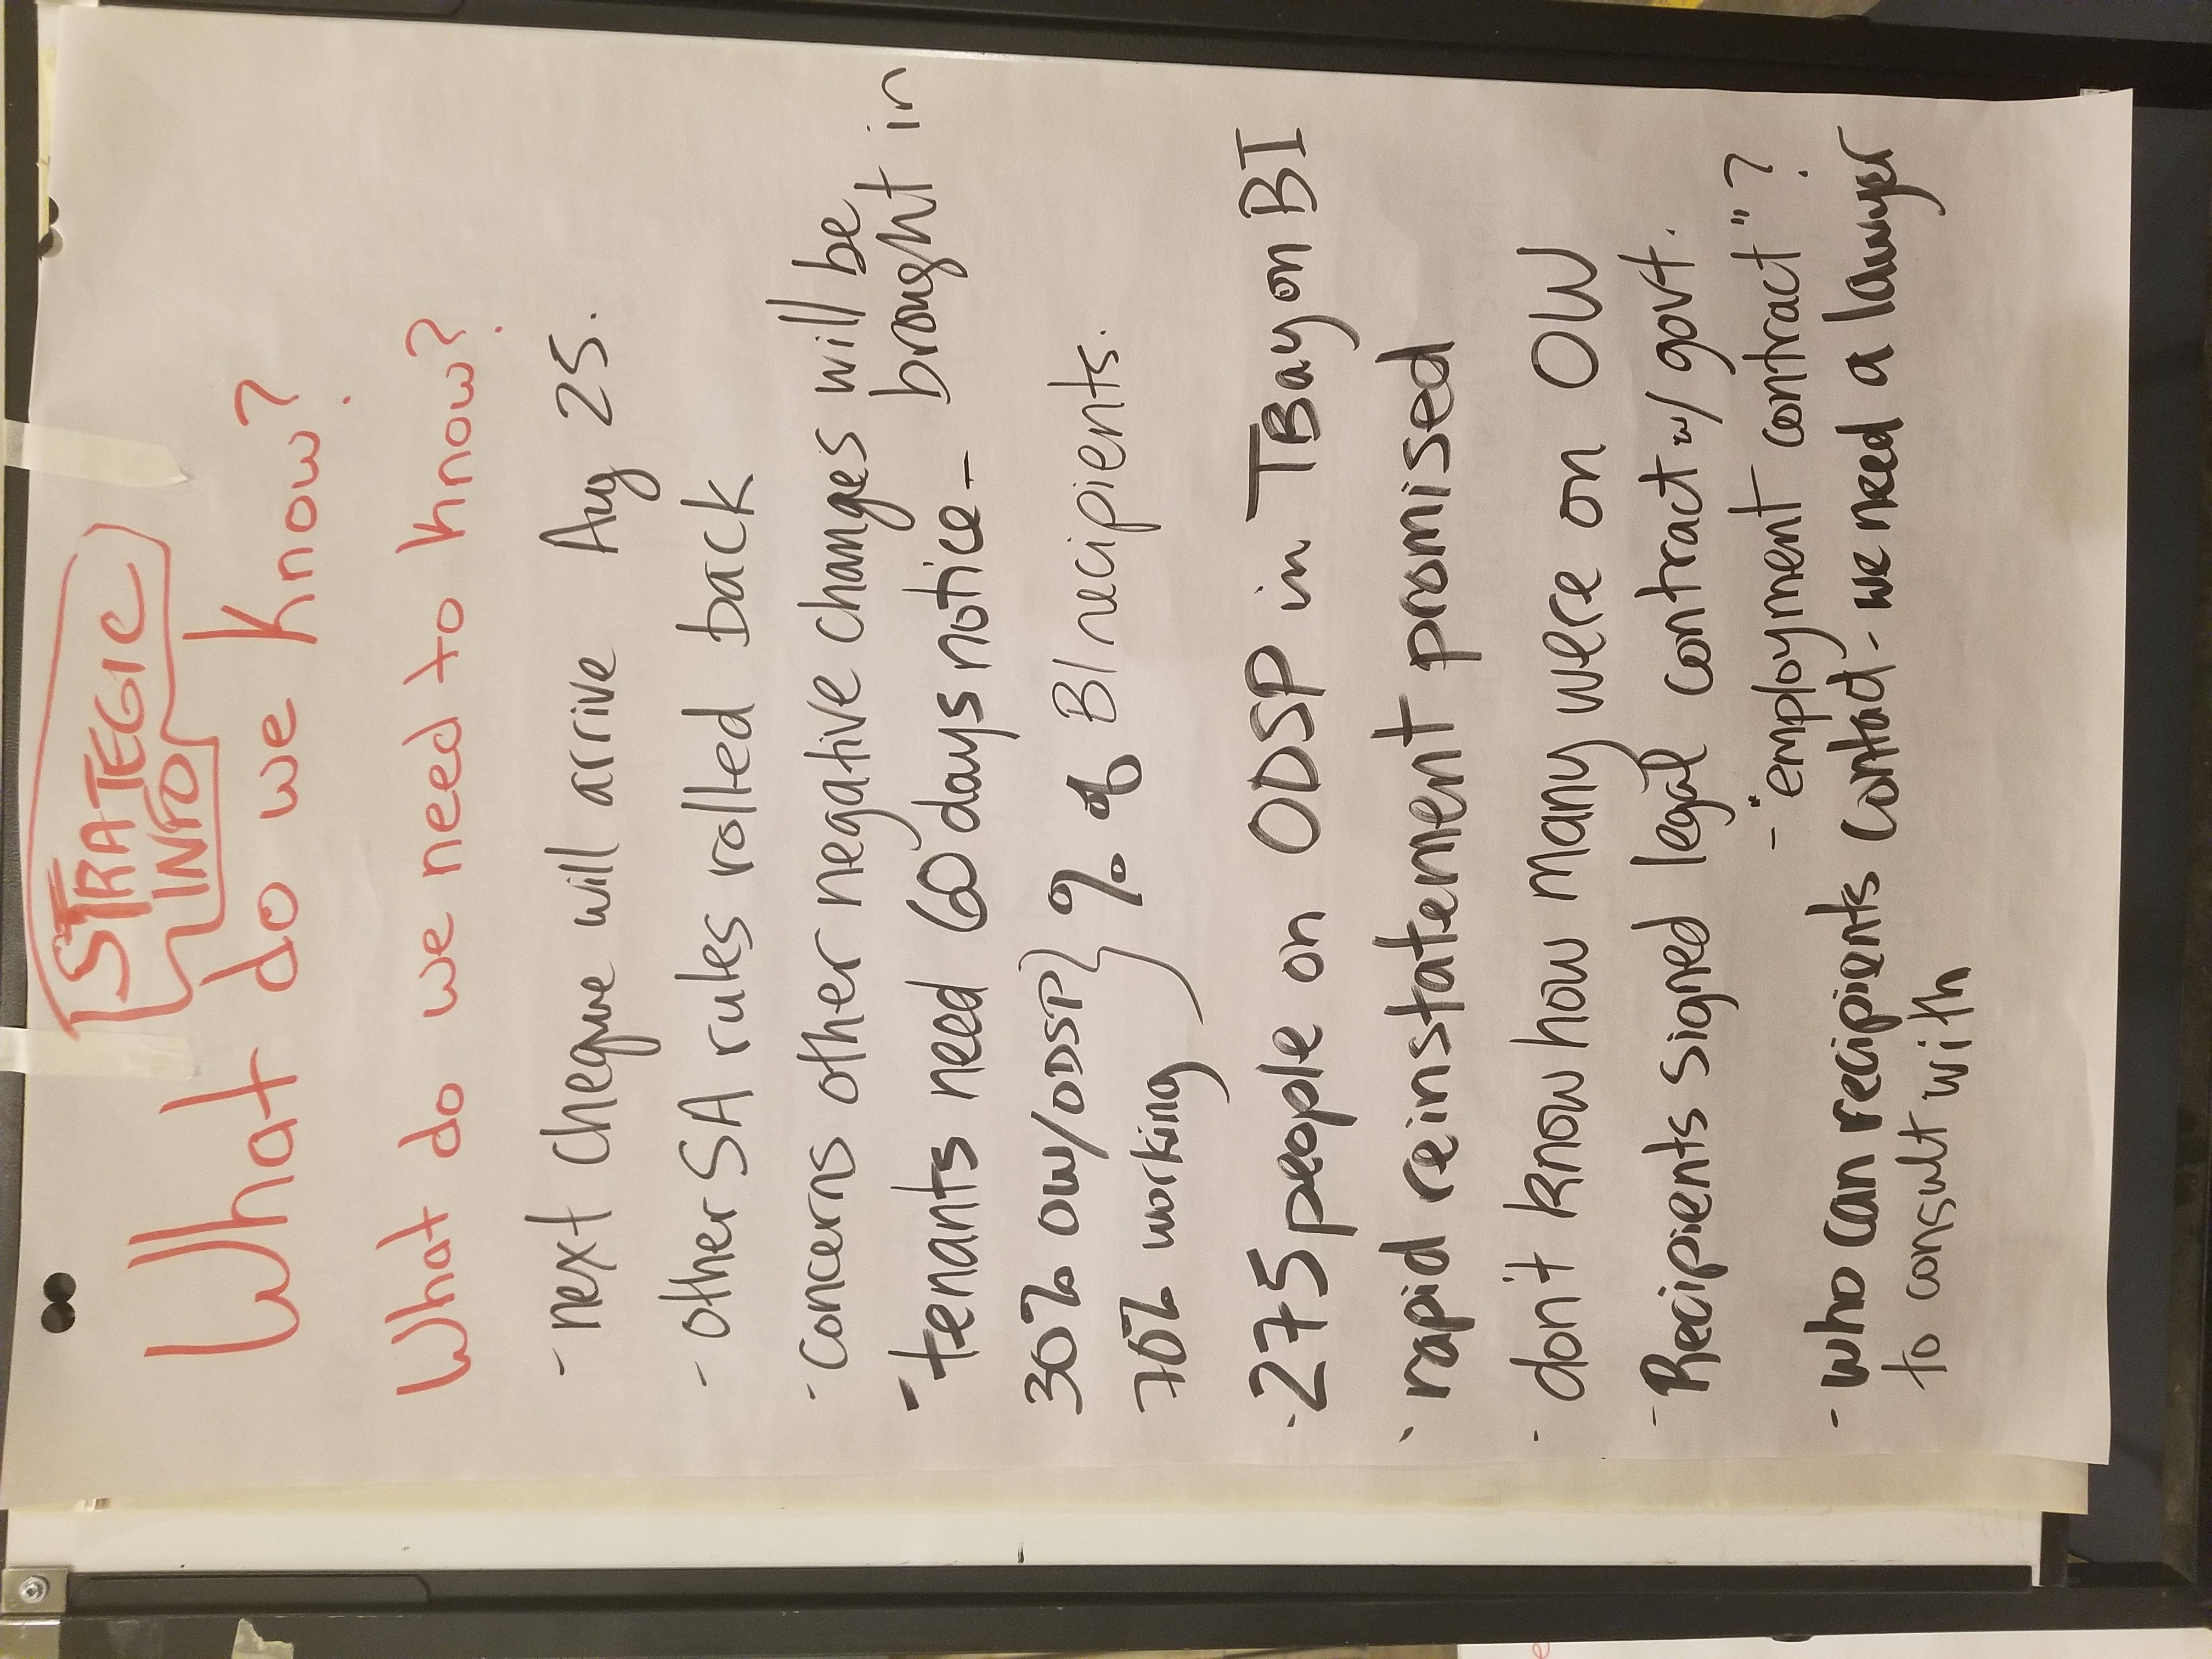 STRATEGIC
INFO
What do we know?
What do we need to know?
- next cheque will arrive Aug 25.
- other SA rules rolled back
- concerns other negative changes will be
brought in
- tenants need 60 days notice -
30% OW/ODSP } % of BI recipients.
70% working
- 275 people on ODSP in TBay on BI
- rapid reinstatement promised
- don't know how many were on OW
- Recipients signed legal contract w/ govt.
- "employment contract"?
- who can recipients contact - we need a lawyer
to consult with